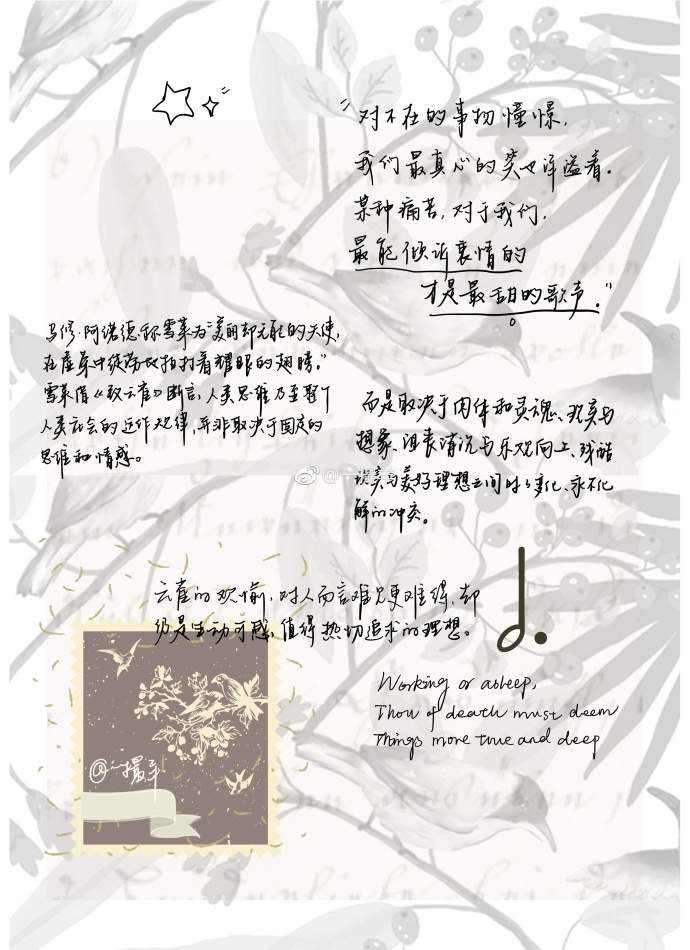 "对不在的事物憧憬,
我们最真心的笑也洋溢着。
某种痛苦,对于我们,
最能倾诉衷情的
才是最甜的歌声."
马修·阿诺德称雪莱为"美丽却无能的天使,
在虚无中徒劳地拍打着耀眼的翅膀."
雪莱借《致云雀》断言,人类思维乃至整个
人类社会的运作规律,并非取决于固定的
思维和情感。
而是取决于肉体和灵魂、现实与
想象、沮丧消沉与乐观向上、残酷
现实与美好理想之间时时变化、永不化
解的冲突。
云雀的欢愉,对人而言难免更难得,却
仍是生动可感,值得热切追求的理想。
Working or asleep,
Thou of death must deem
Things more true and deep
@一撮平